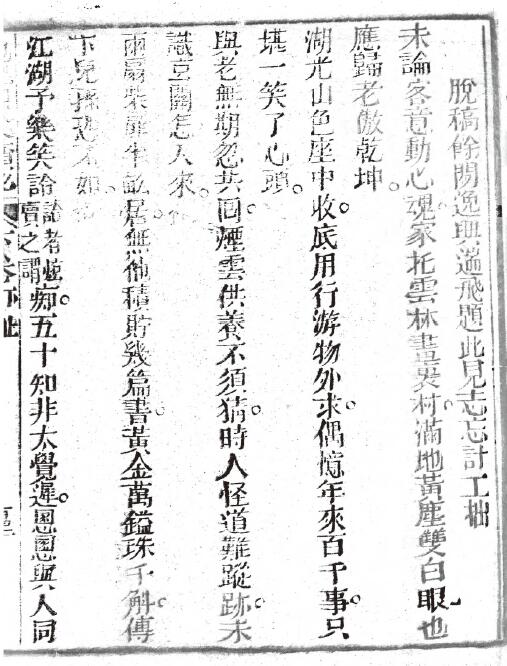 脫稿餘閒逸興遄飛題此見志忘計工拙
未論客意動心魂家托雲林畫裏村滿地黃塵雙白眼也
應歸老傲乾坤
湖光山色座中收底用行游物外求偶憶年來百千事只
堪一笑了心頭
與老無期忽共回煙雲供養不須猜時人怪道難蹤跡未
識荳關怎人來
兩扇柴扉半畝居無他積貯幾篇書黃金萬鎰珠千斛傳
下兒孫恐不如
江湖予樂笑詅詅者遊賣之謂痴五十知非太覺遲恩恩與人同